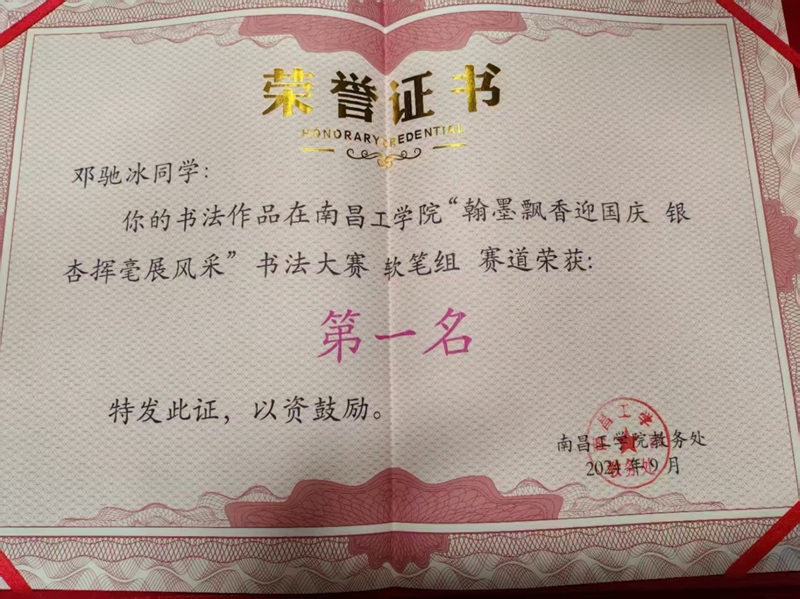 荣誉证书
HONORARY CREDENTIAL
邓驰冰同学:
你的书法作品在南昌工学院“翰墨飘香迎国庆 银
杏挥毫展风采”书法大赛 软笔组 赛道荣获:
第一名
特发此证，以资鼓励。
南昌工学院教务处
2024年9月
南昌工学院
教务处